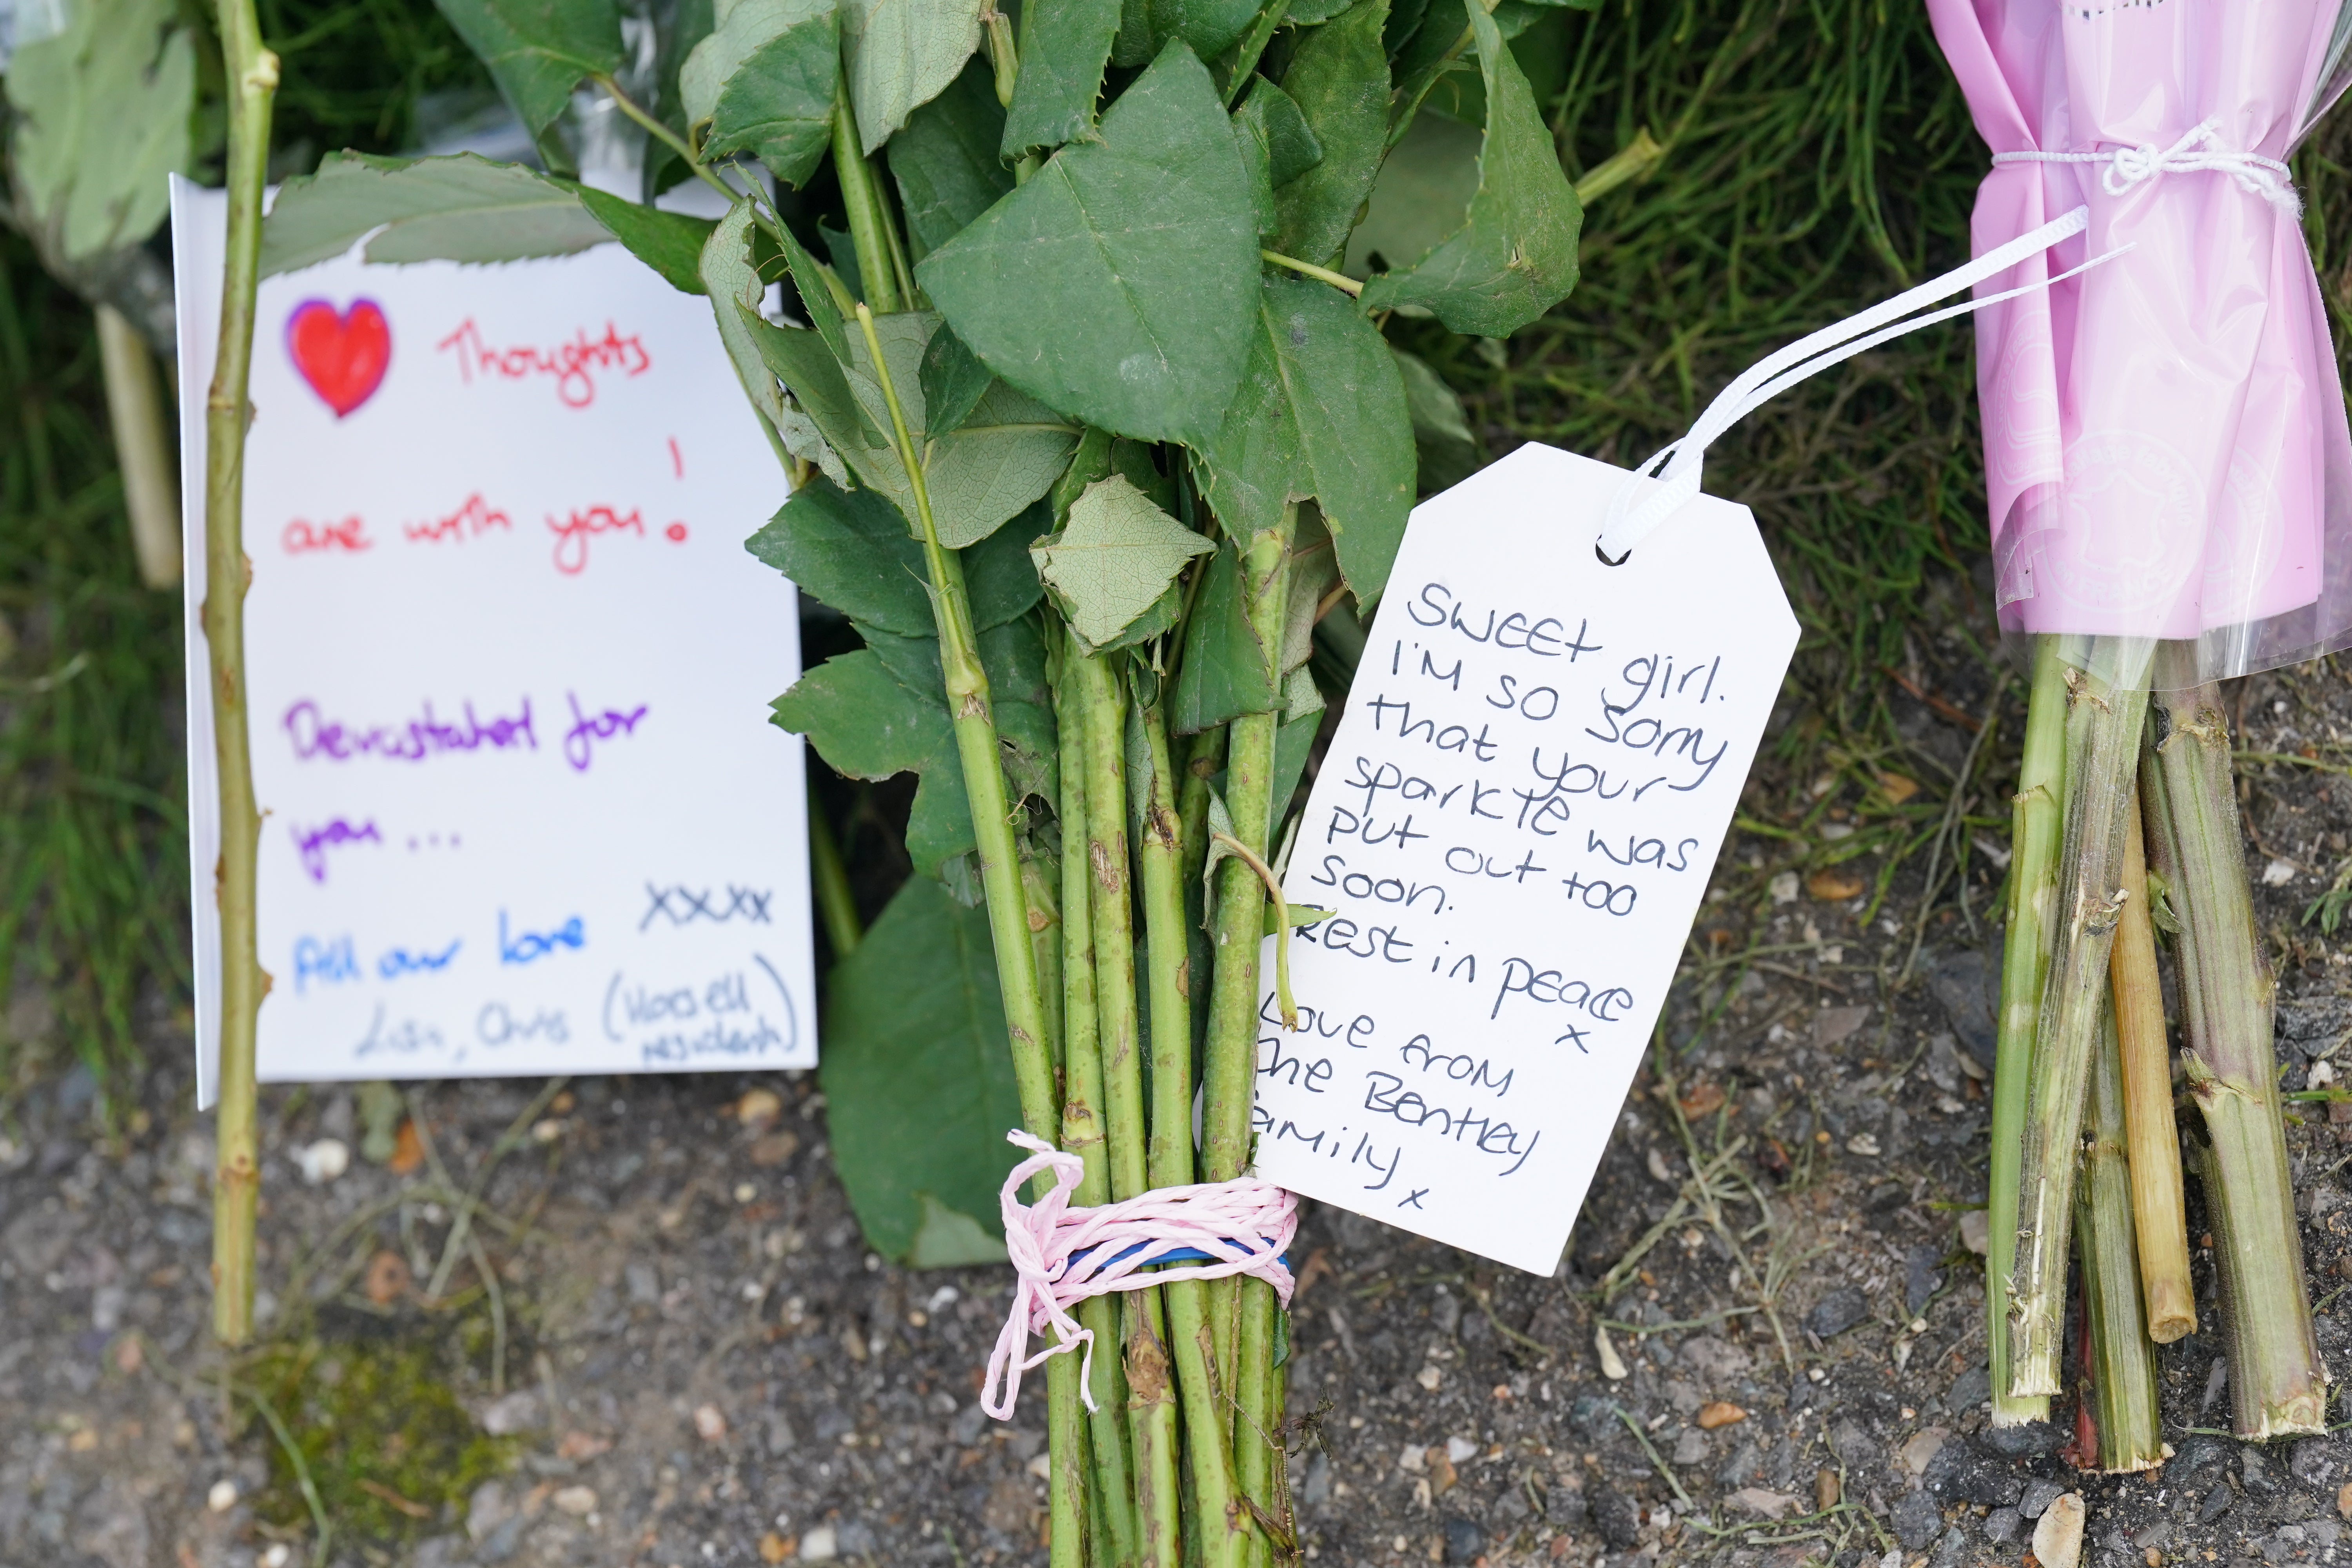 Thoughts
are with you!
Devastated for
you...
xxxx
All our love
Lisa, Chris (Horsell
residents)
Sweet girl.
I'm so sorry
that your
sparkle was
put out too
soon.
Rest in peace
x
Love from
the Bentley
family x